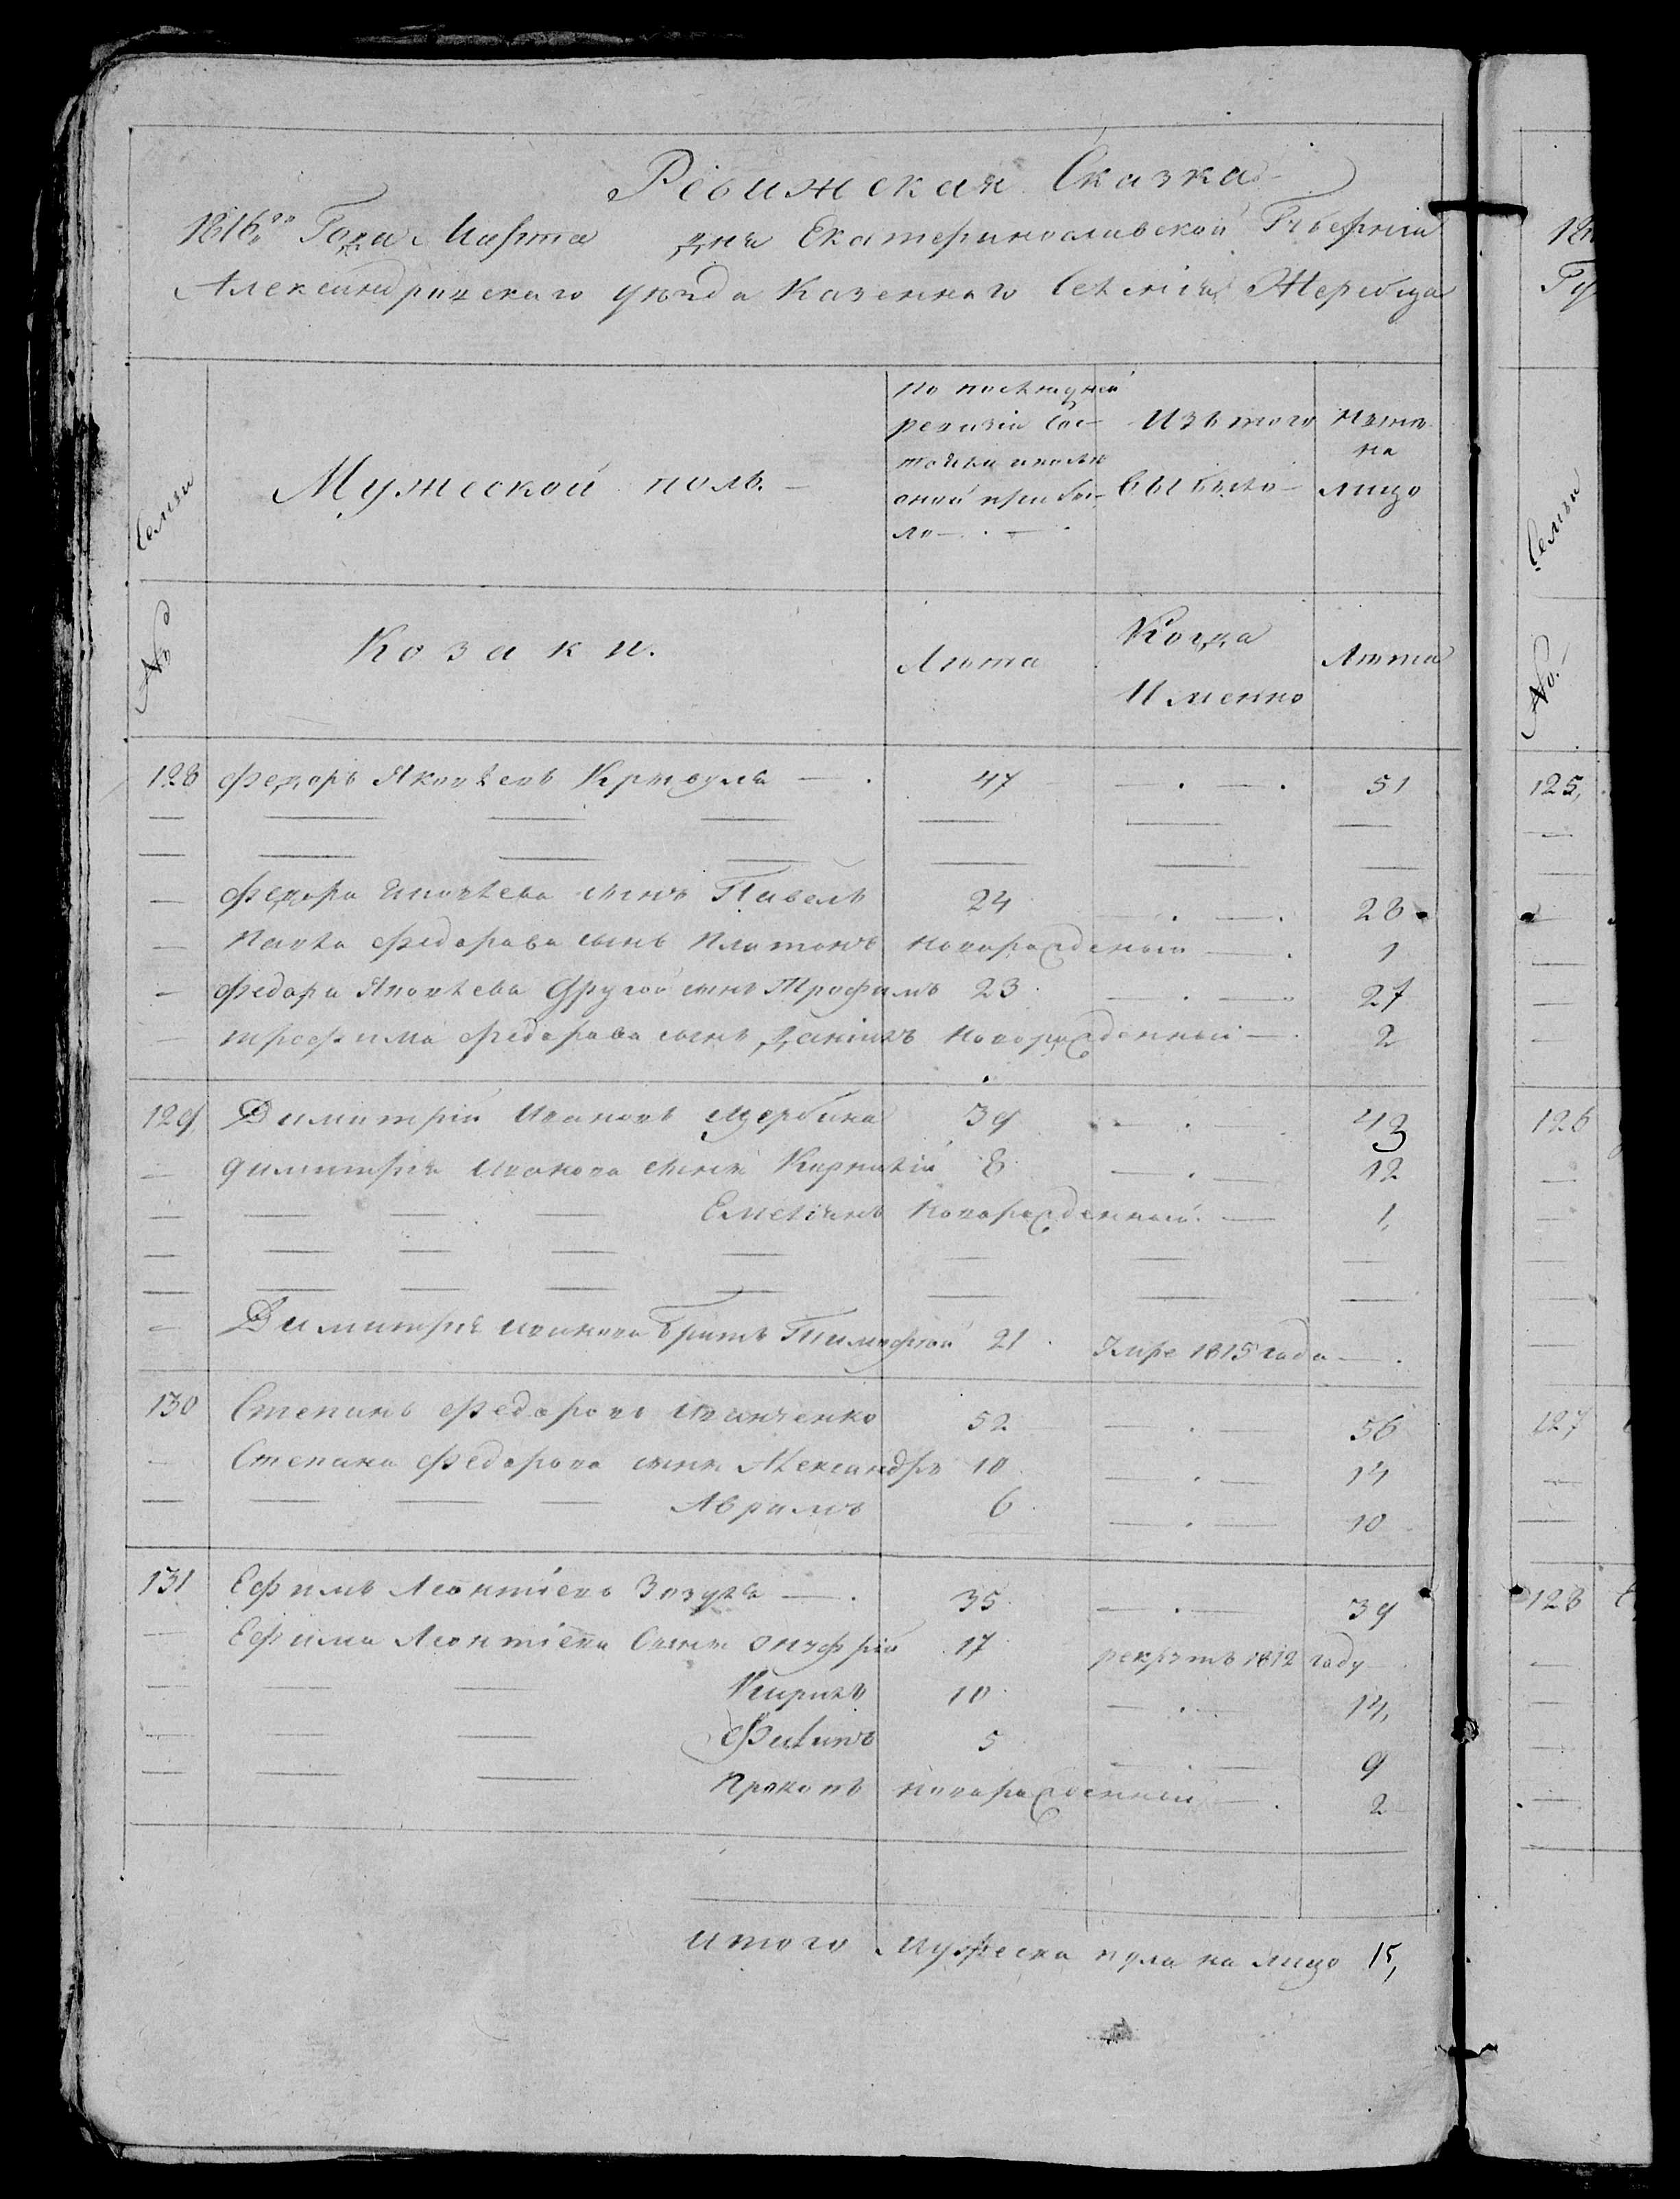 Ревижская Сказка
1816го Года Марта дня Екатеринославской Губерніи
Александровскаго уезда Казеннаго Селенія Жеребца
Семьи
Мужеской полъ.
по последней ревизіи состояло и после оной прибыло
Изъ того выбыло
Ныне на лицо
№
Козаки.
Лета
Когда Именно
Лета
128 Федоръ Яковлевъ Кривуля 47 51
Федора Яковлева сынъ Павелъ 24 28
Павла Федорова сынъ Платонъ новорожденый 1
Федора Яковлева другой сынъ Трофимъ 23 27
Трофима Федорова сынъ Данилъ новорожденный 2
129 Димитрій Ивановъ Щербина 39 43
Димитрія Иванова сынъ Корнилій 8 12
Емеліянъ новорожденный 1
Димитрія Иванова Братъ Тимофей 21 Умре 1815 года
130 Степанъ Федоровъ Иванченко 52 56
Степана Федорова сынъ Александръ 10 14
Аврамъ 6 10
131 Ефимъ Леонтіевъ Зозуля 35 39
Ефима Леонтіева Сынъ Онуфрій 17 рекрутъ 1812 году
Кирилъ 10 14
Филипъ 5 9
Прокопъ новорожденный 2
итого мужеска пола на лицо 15,
125,
126
127
128
Семьи
№